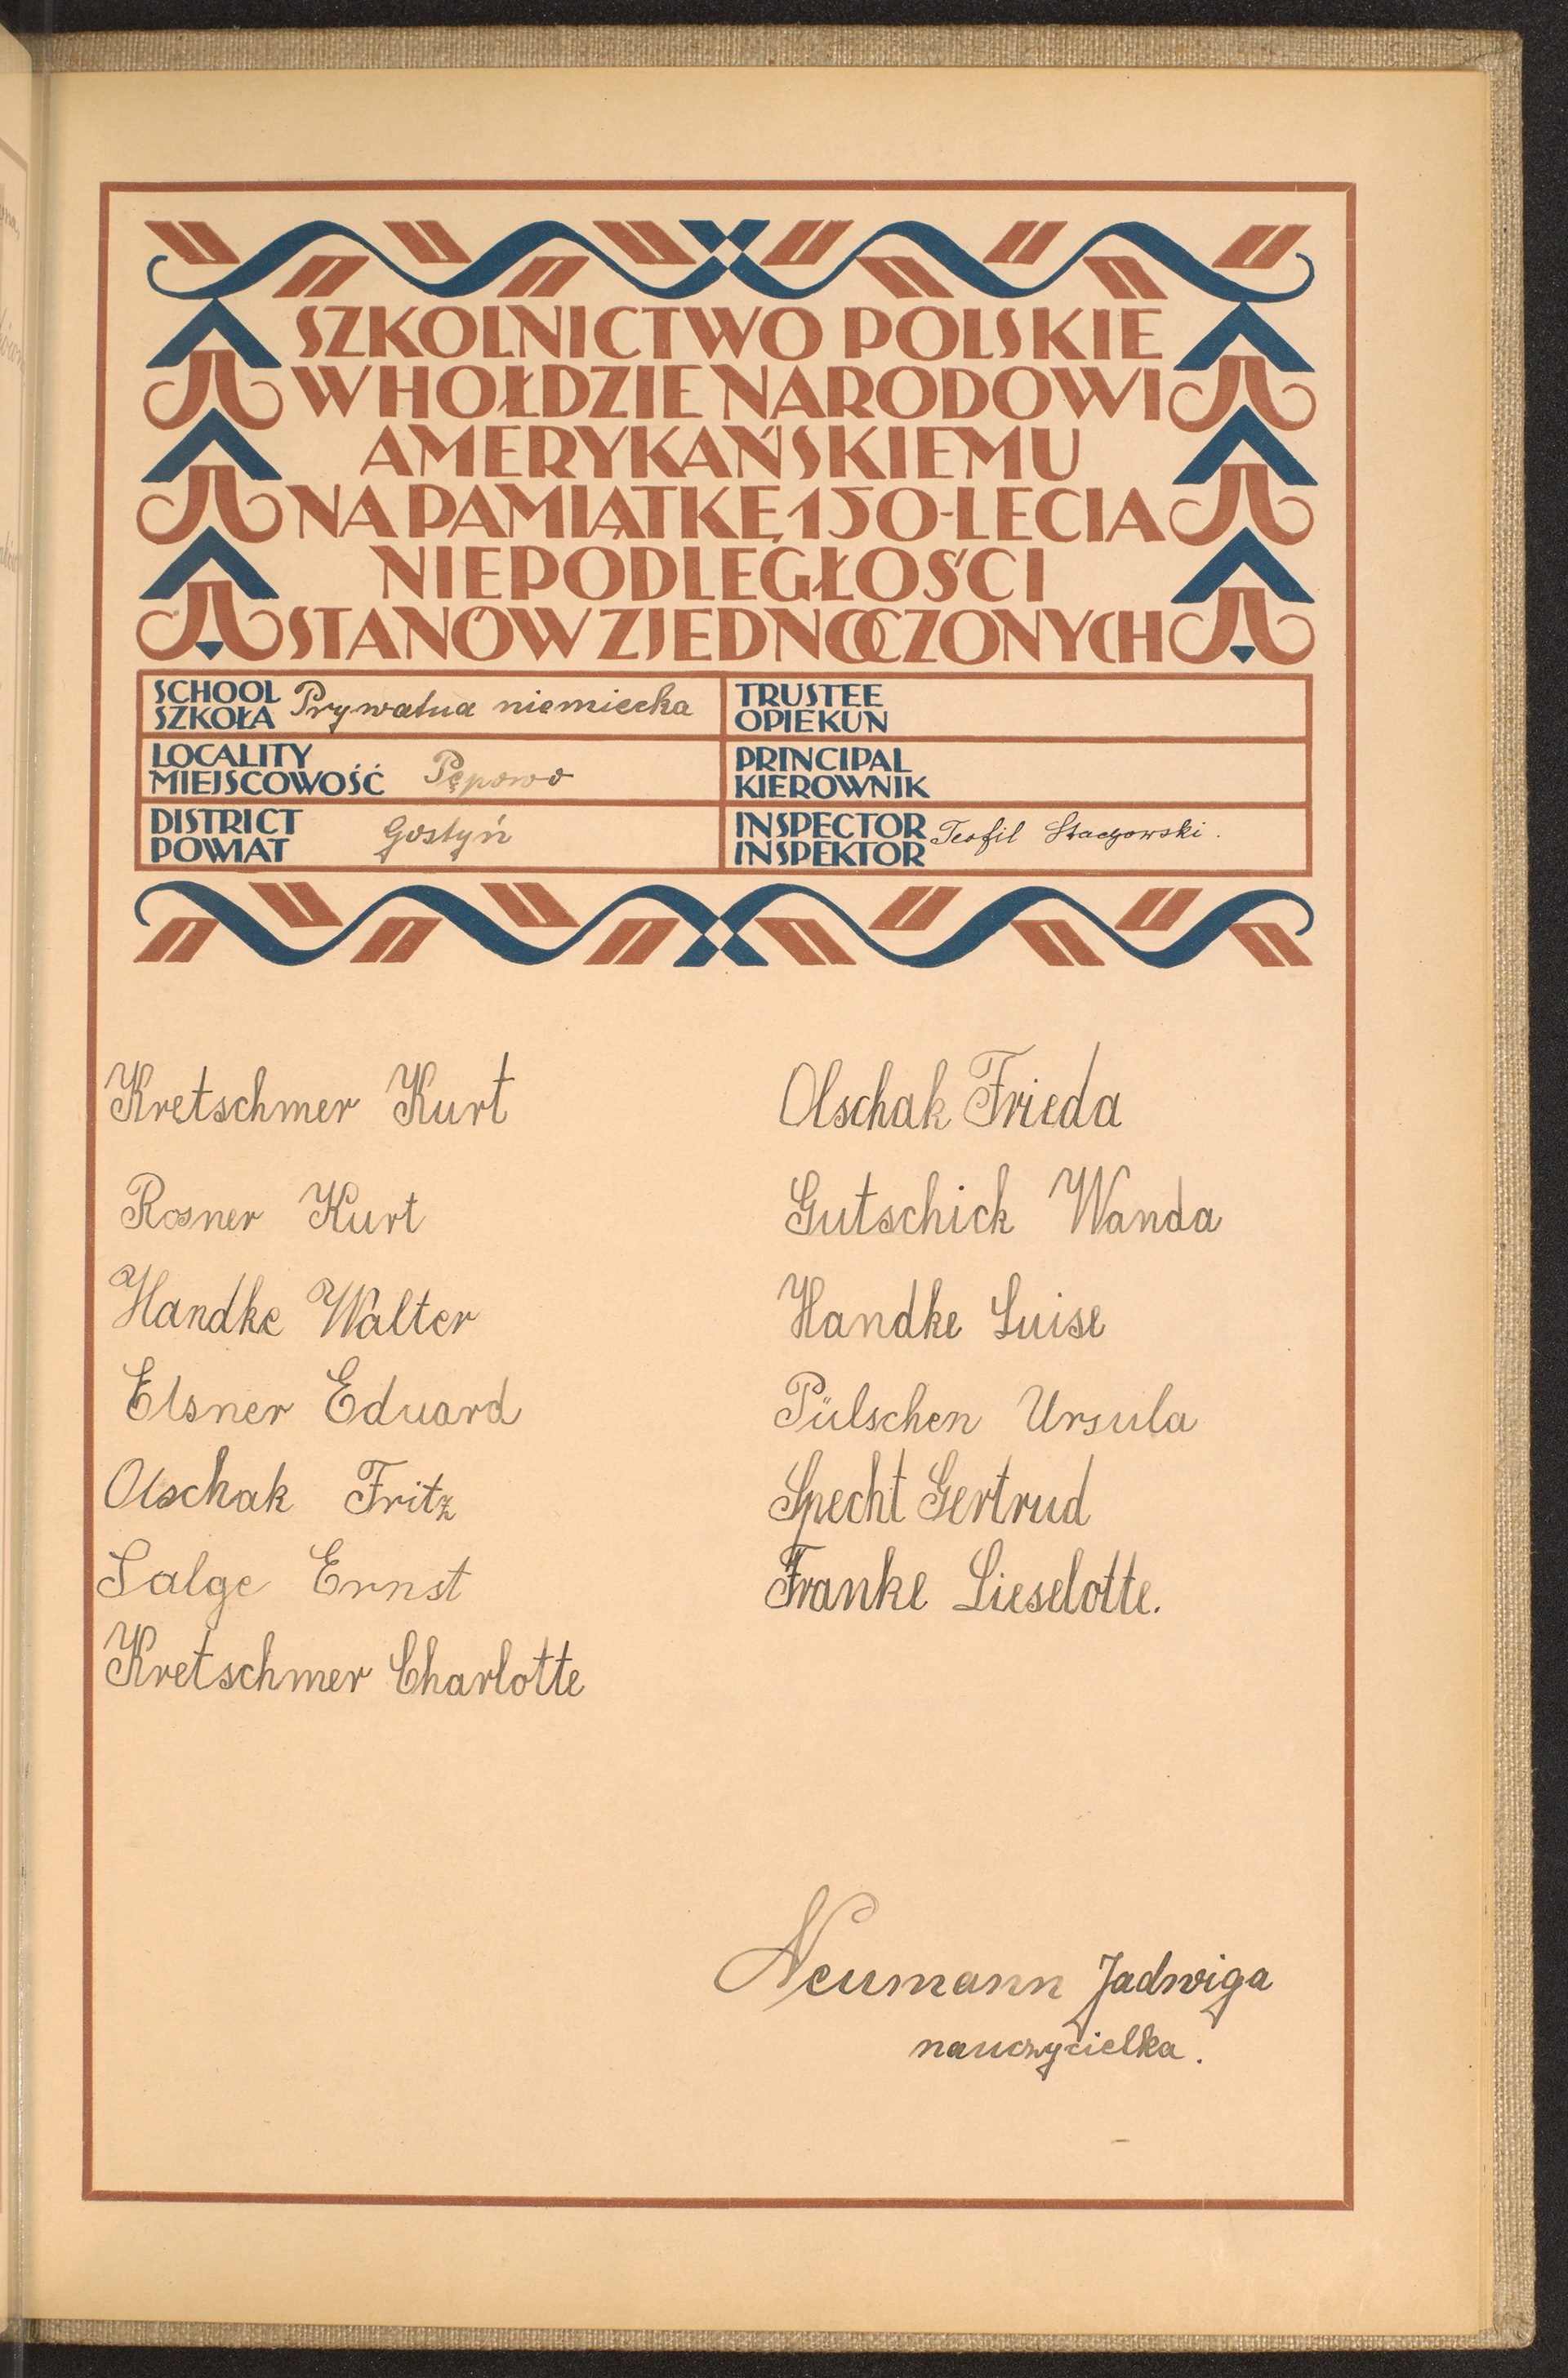 SZKOLNICTWO POLSKIE
W HOŁDZIE NARODOWI
AMERYKAŃSKIEMU
NA PAMIĄTKĘ 150-LECIA
NIEPODLEGŁOŚCI
STANÓW ZJEDNOCZONYCH
SCHOOL
SZKOŁA Prywatna niemiecka
TRUSTEE
OPIEKUN
LOCALITY
MIEJSCOWOŚĆ Pępowo
PRINCIPAL
KIEROWNIK
DISTRICT
POWIAT Gostyń
INSPECTOR
INSPEKTOR Teofil
Kretschmer Kurt
Rosner Kurt
Handke Walter
Elsner Eduard
Olschak Fritz
Salge Ernst
Kretschmer Charlotte
Olschak Frieda
Gutschick Wanda
Handke Luise
Pülschen Ursula
Specht Gertrud
Franke Lieselotte.
Neumann Jadwiga
nauczycielka.